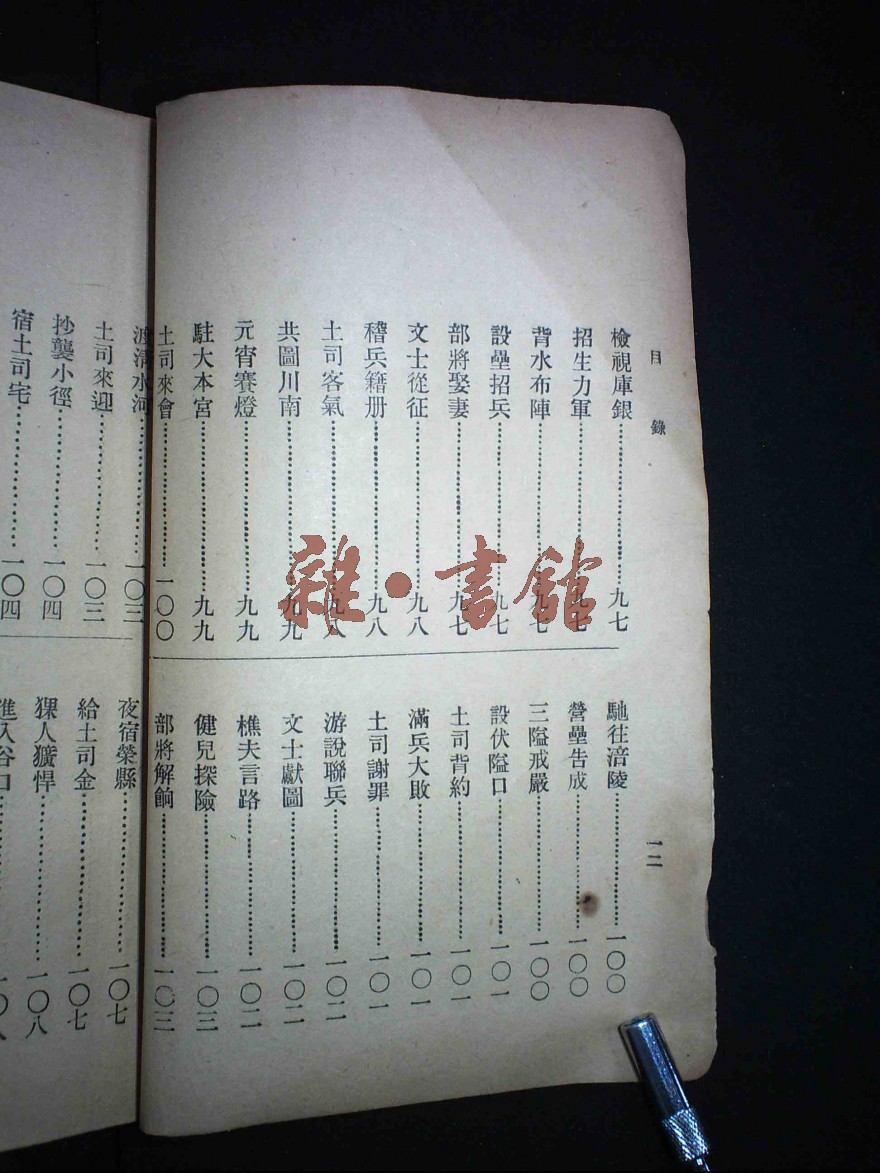 目錄
檢視庫銀……九七
招生力軍……九七
背水布陣……九七
設壘招兵……九七
部將娶妻……九七
文士從征……九八
稽兵籍册……九八
土司客氣……九八
共圖川南……九九
元宵賽燈……九九
駐大本宮……九九
土司來會……一〇〇
馳往涪陵……一〇〇
營壘告成……一〇〇
三隘戒嚴……一〇〇
設伏隘口……一〇一
土司背約……一〇一
滿兵大敗……一〇一
土司謝罪……一〇一
游說聯兵……一〇二
文士獻圖……一〇二
樵夫言路……一〇二
健兒探險……一〇三
部將解餉……一〇三
一二
渡清水河……一〇三
土司來迎……一〇三
抄襲小徑……一〇四
宿土司宅……一〇四
夜宿榮縣……一〇七
給土司金……一〇七
猓人獷悍……一〇八
進入谷口……一〇八
雜·書館